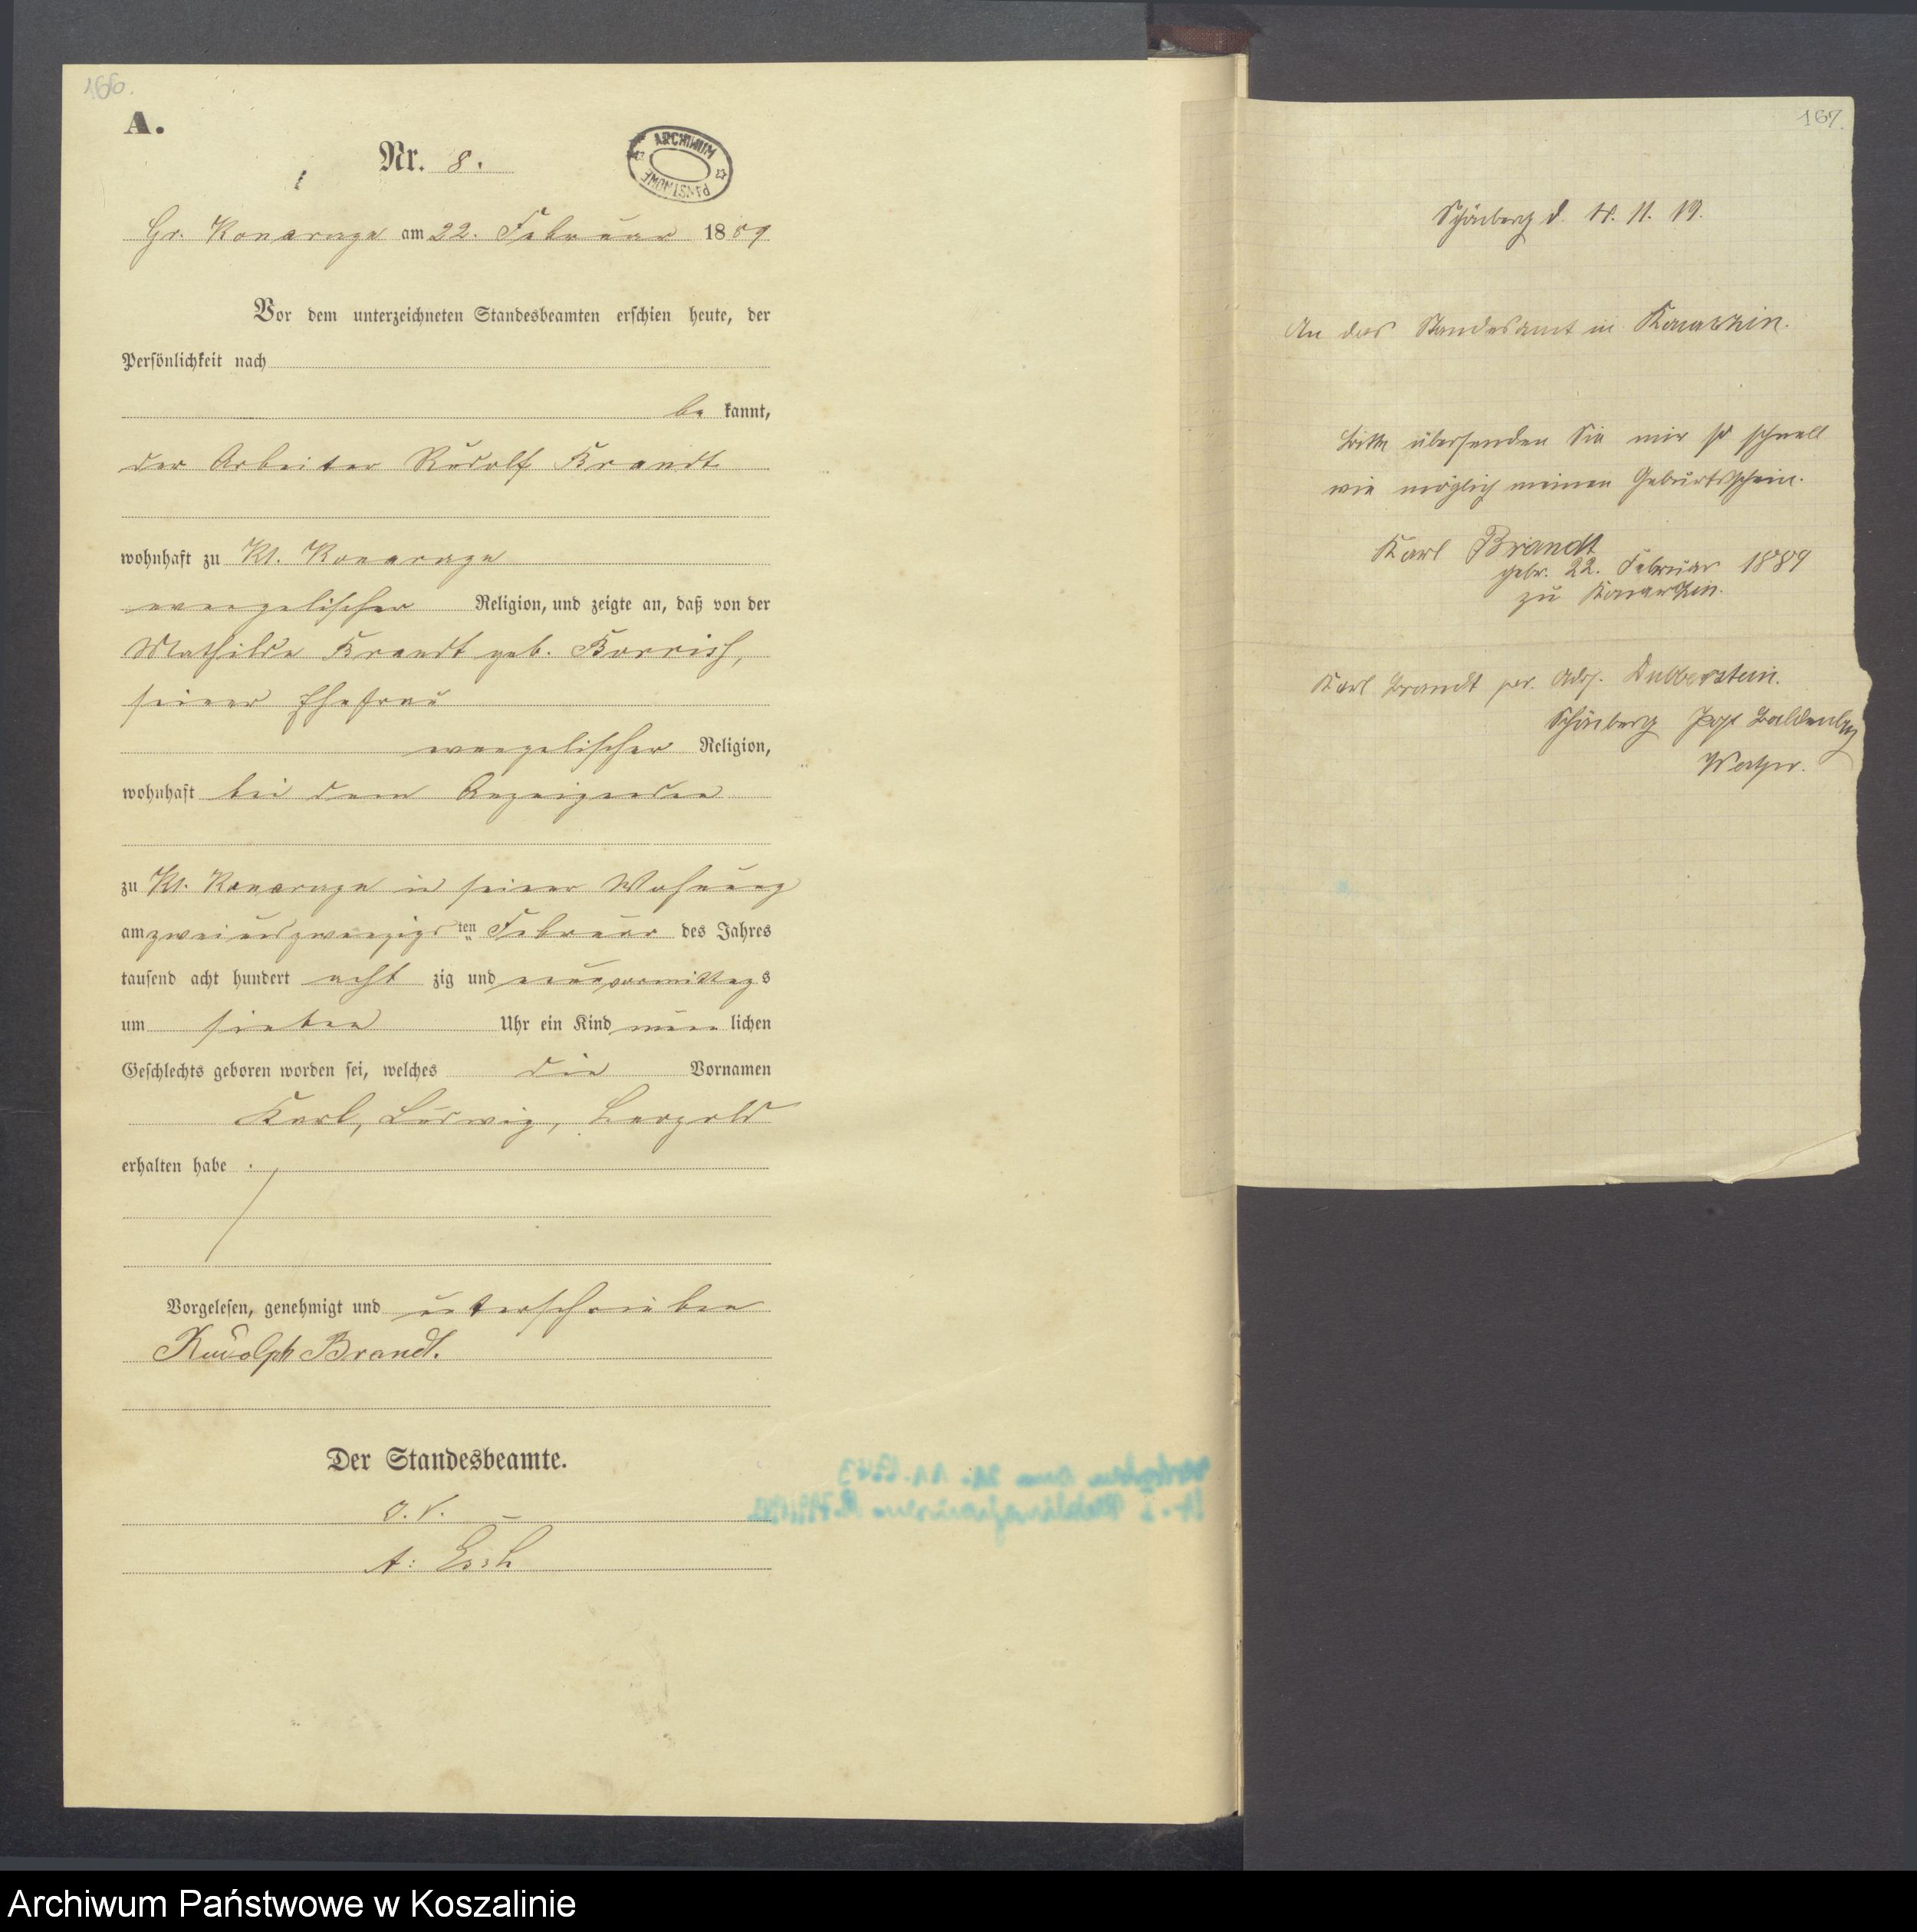 166.
A.
Nr. 8.
ARCHIWUM PAŃSTWOWE
Gr. Konarczyn am 22. Februar 1889
Vor dem unterzeichneten Standesbeamten erschien heute, der
Persönlichkeit nach
be kannt,
der Arbeiter Rudolf Brandt
wohnhaft zu Kl. Konarczyn
evangelischer Religion, und zeigte an, daß von der
Mathilde Brandt geb.
seiner Ehefrau
evangelischer Religion,
wohnhaft bei dem Anzeigenden
zu Kl. Konarczyn in seiner Wohnung
am zweiundzwanzigsten Februar des Jahres
tausend acht hundert acht zig und neun vormittags
um sieben Uhr ein Kind männlichen
Geschlechts geboren worden sei, welches die Vornamen
Karl, Ludwig, Leopold
erhalten habe.
Vorgelesen, genehmigt und unterschrieben
Rudolph Brandt.
Der Standesbeamte.
167.
Schönberg d. 11. 19.
An das Standesamt in Konarzin.
Bitte übersenden Sie mir so schnell
wie möglich meinen Geburtsschein.
Karl Brandt
gebr. 22. Februar 1889
zu Konarzin.
Karl Brandt per. Adr. Dubberstein.
Schönberg Post Baldenburg
Westpr.
Archiwum Państwowe w Koszalinie